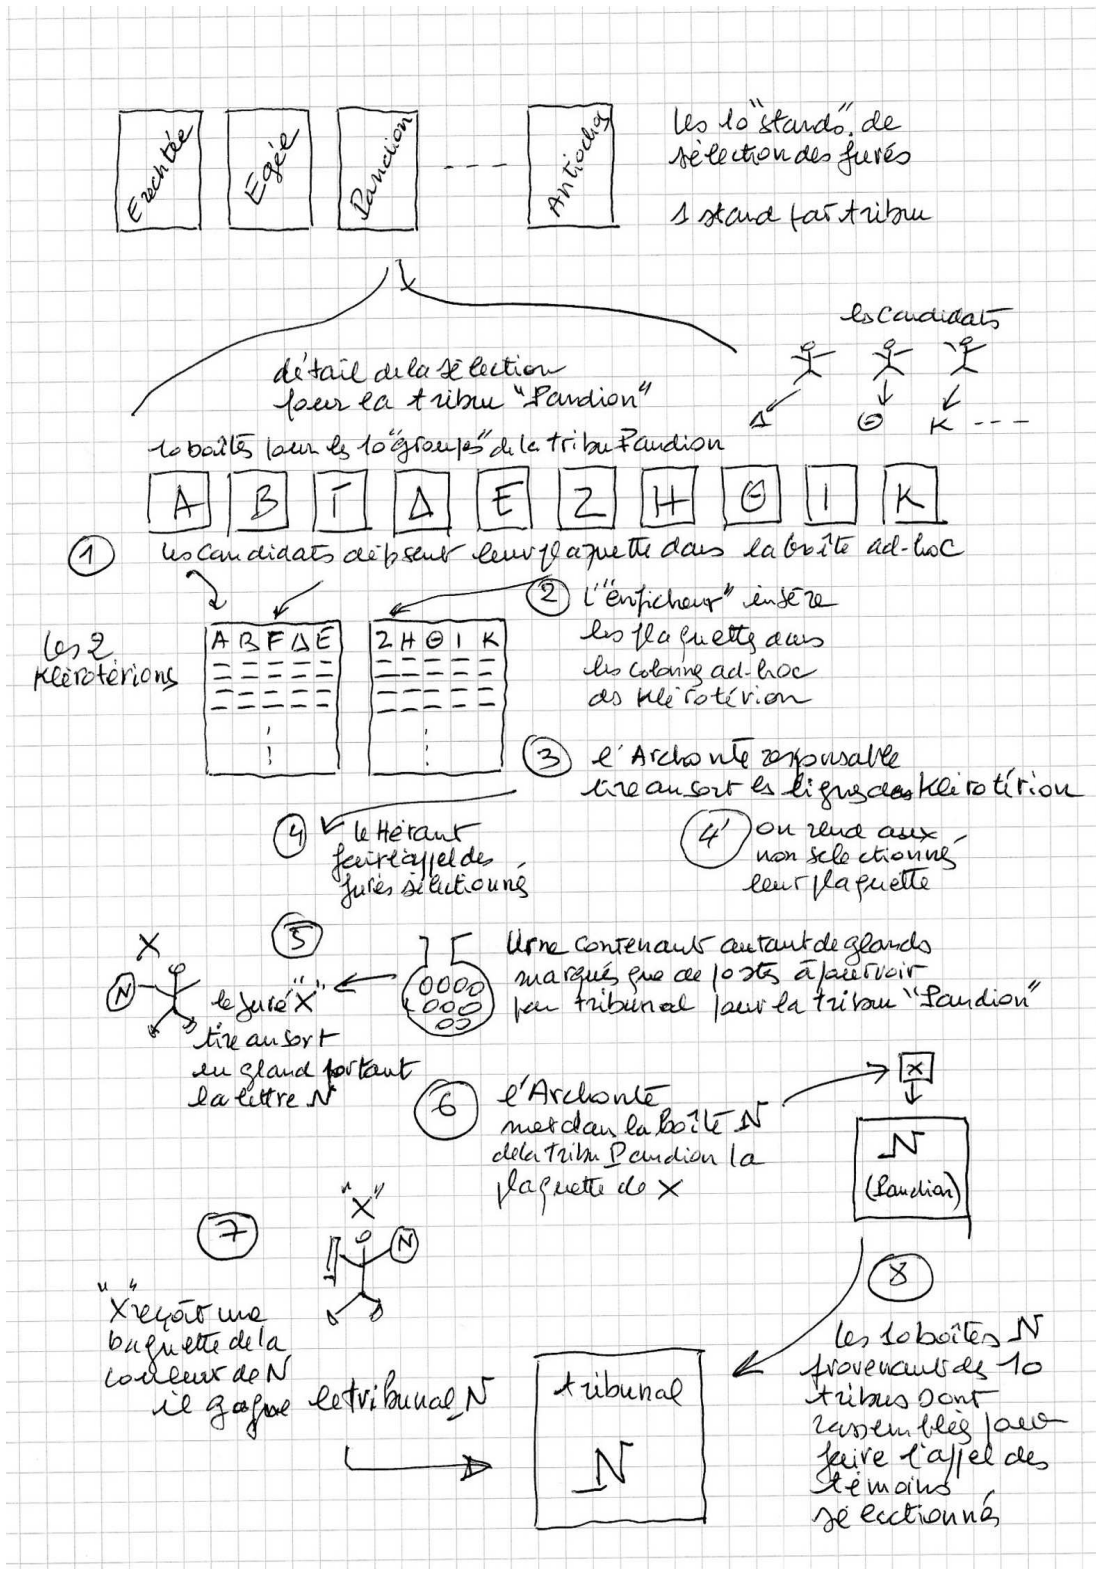 Erechtée
Egée
Pandion
Antiochos
les 10 "stands" de
sélection des jurés
1 stand par tribu
les candidats
détail de la sélection
pour la tribu "Pandion"
Δ Θ K
10 boîtes pour les 10 "groupes" de la tribu Pandion
A B Γ Δ E Z H Θ I K
1 les candidats déposent leur plaquette dans la boîte ad-hoc
les 2
Klérotérions
A B Γ Δ E
Z H Θ I K
2 l'"enficheur" insère
les plaquettes dans
les colonnes ad-hoc
des Klérotérion
3 l'Archonte responsable
tire au sort les lignes des Klérotérion
4 le Héraut
fait l'appel des
jurés sélectionnés
4' on rend aux
non sélectionnés
leur plaquette
5
X
N
le juré "X"
tire au sort
un gland portant
la lettre N
Urne contenant autant de glands
marqués que de postes à pourvoir
par tribunal pour la tribu "Pandion"
6 l'Archonte
met dans la boîte N
de la tribu Pandion la
plaquette de X
X
N
(Pandion)
7
"X"
N
"X" reçoit une
baguette de la
couleur de N
il gagne le tribunal N
tribunal
N
8
les 10 boîtes N
provenant des 10
tribus sont
rassemblées pour
faire l'appel des
témoins
sélectionnés